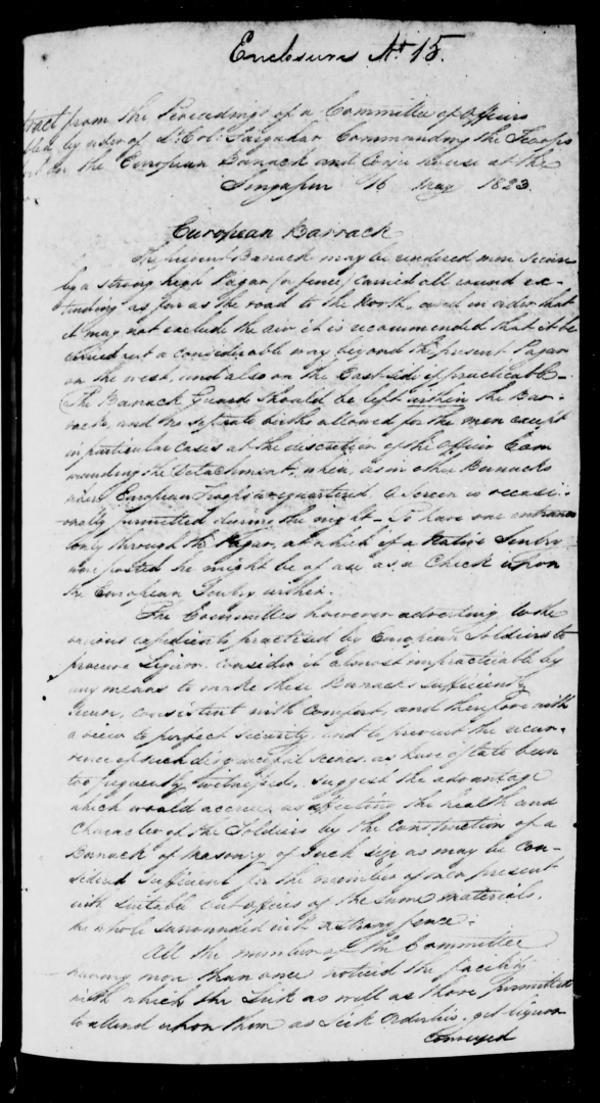 Enclosure No 15.
tract from the Proceedings of a Committee of Officers
bled by order of Lt. Col. Farquhar Commanding the Troops
on the European Barrack and Conjee house at the
Singapur 16 May 1823.
European Barrack
The present Barrack may be rendered more secure
by a strong high Pagar (or fence) carried all round ex-
tending as far as the road to the North, and in order that
it may not exclude the air it is recommended that it be
carried out a considerable way beyond the present Pagar
on the west, and also on the East side if practicable -
The Barrack Guard should be left within the Bar-
rack, and no seperate births allowed for the men except
in particular cases at the discretion of the Officer Com
manding the Detachment, when, as in other Barracks
where European Troops are quartered, a Screen is occasi-
onally permitted during the night - To have one entrance
only through the Pagar, at which if a Native Sentry
were posted he might be of use as a Check upon
the European Sentry within.
The Committee however adverting to the
various expedients practised by European Soldiers to
procure Liquor, consider it almost impracticable by
any means to make these Barracks sufficiently
secure, consistent with comfort, and therefore with
a view to perfect security, and to prevent the recur-
rence of such disgraceful scenes, as have of late been
too frequently witnessed, suggest the advantage
which would accrue, as affecting the health and
Character of the Soldiers by the construction of a
Barrack of Masonry of such size as may be con-
sidered sufficient for the number of men present
with suitable out offices of the same materials,
the whole surrounded with a strong fence.
All the members of the Committee
having more than once noticed the facility
with which the Sick as well as those permitted
to attend upon them as Sick Orderlies, get liquor
conveyed